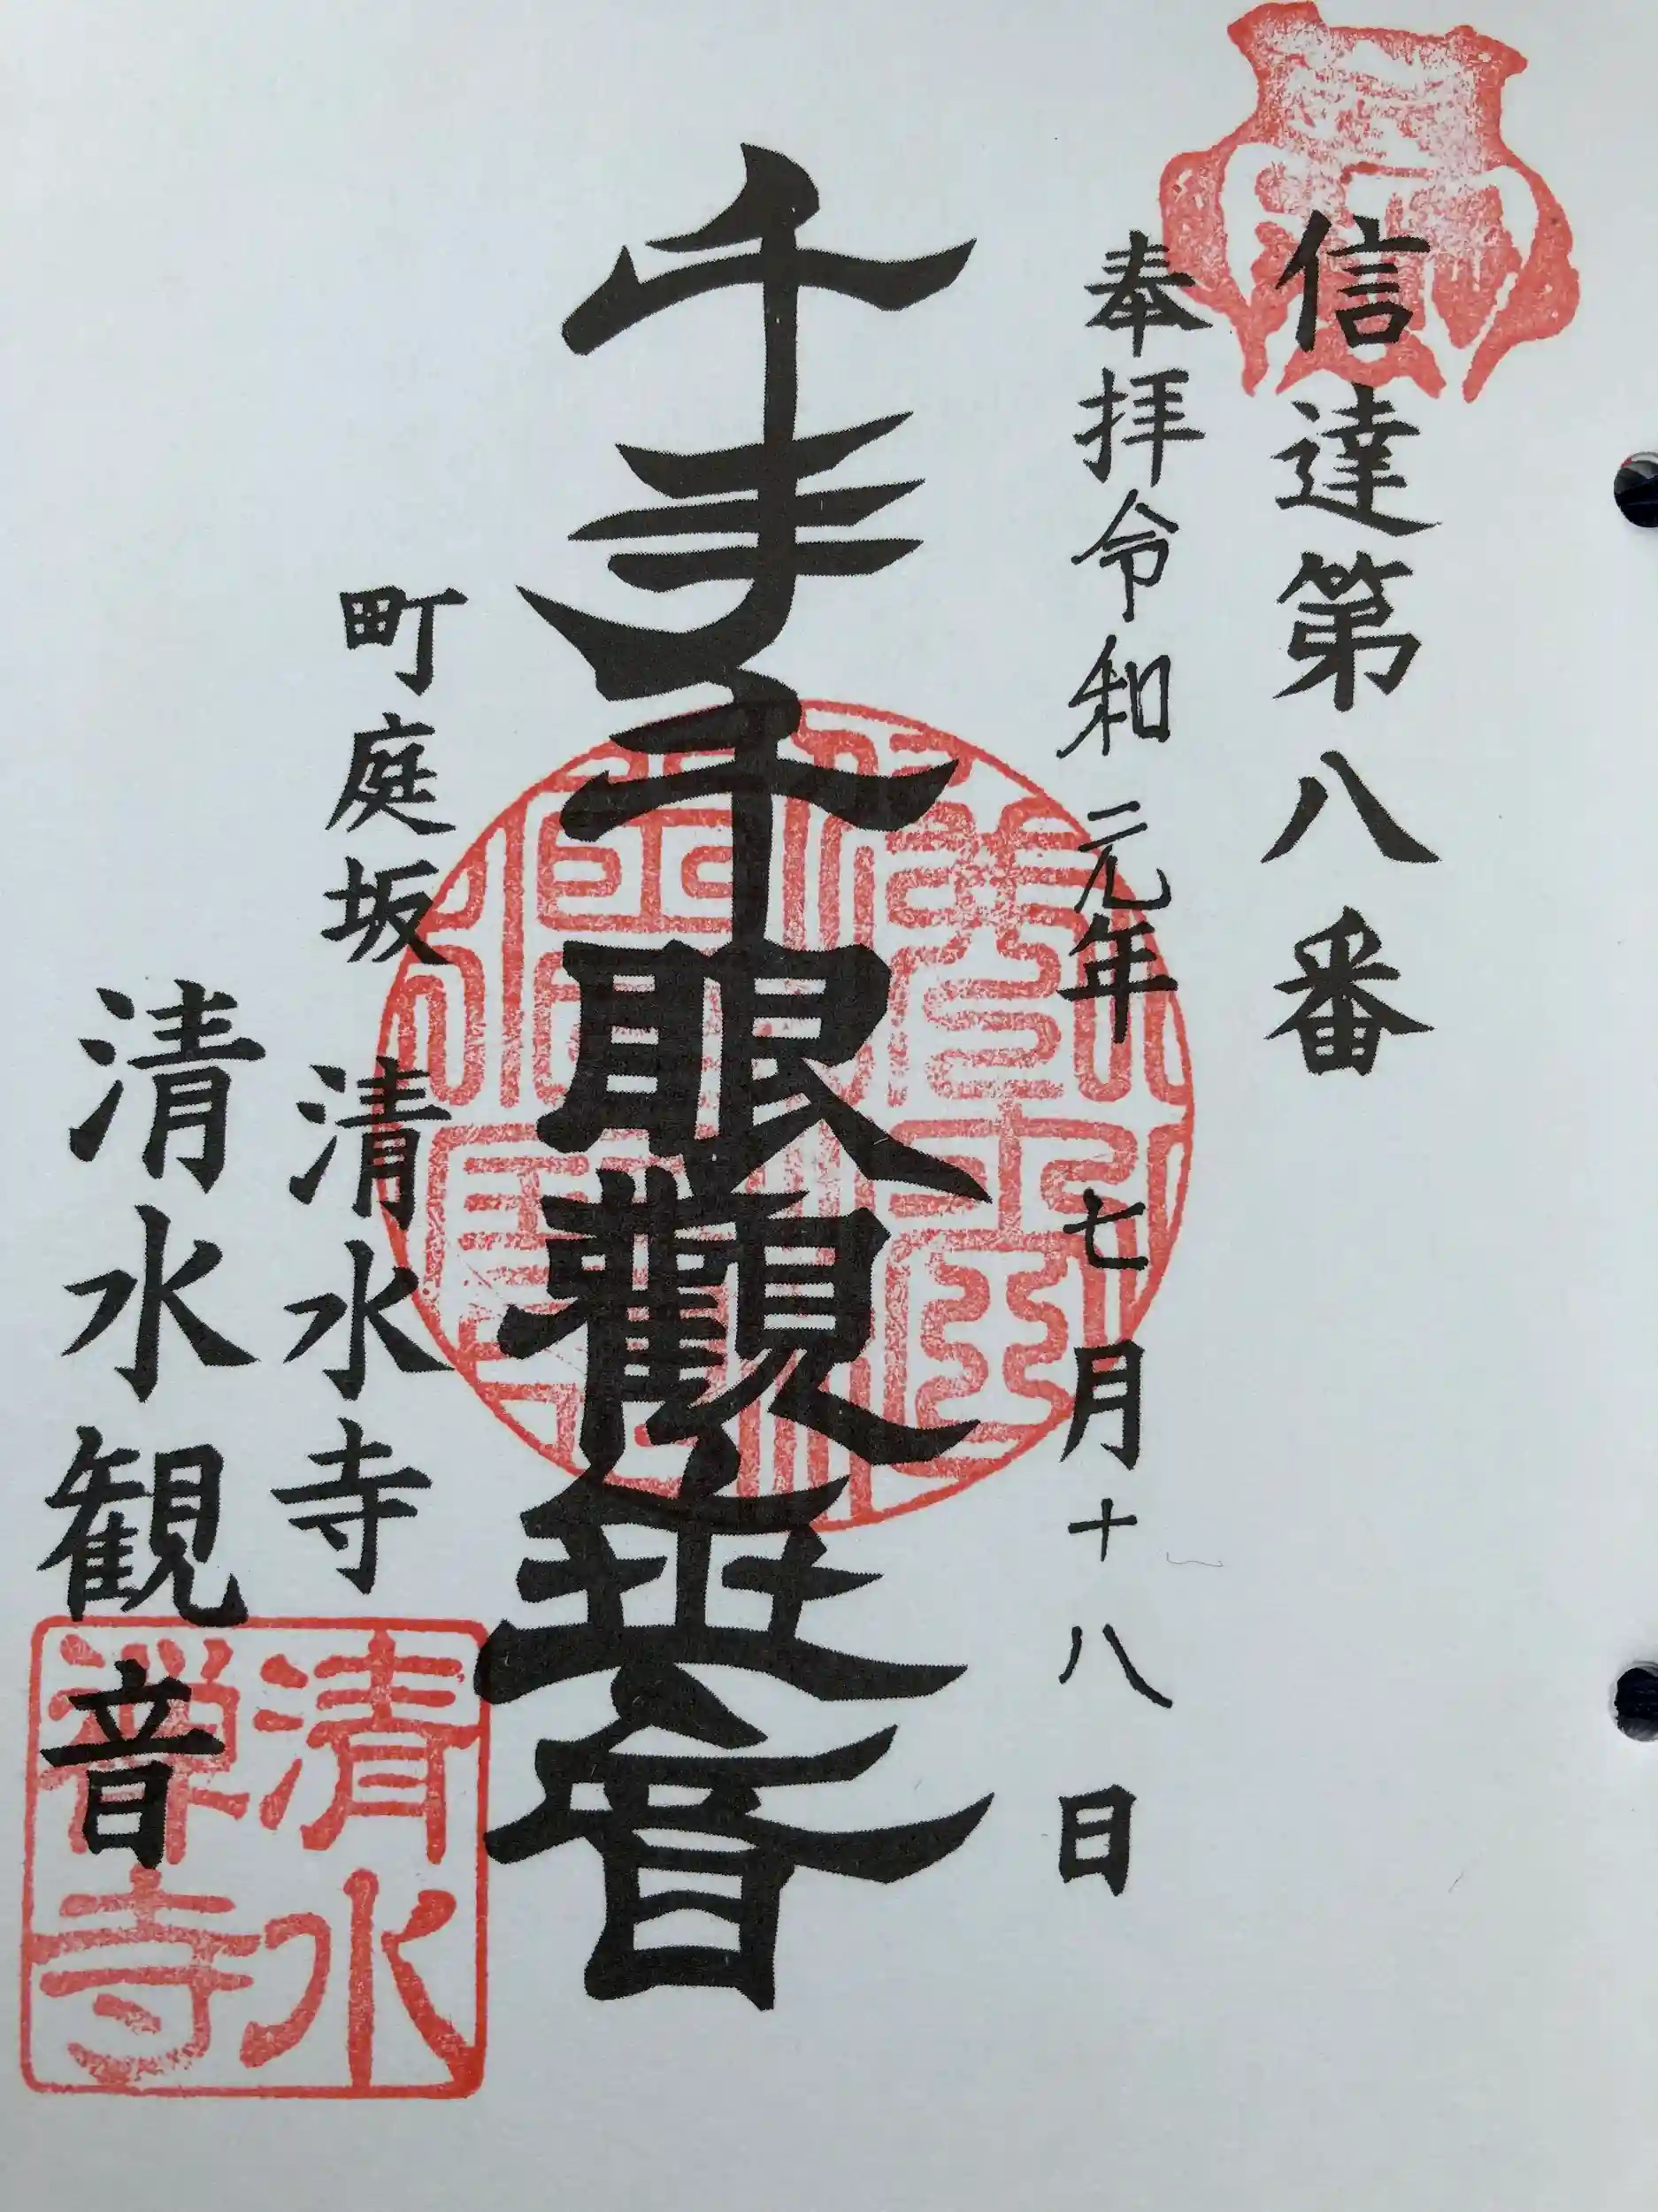 信達第八番
奉拝令和元年七月十八日
千手千眼觀世音
町庭坂
清水寺
清水観音
清水
禅寺